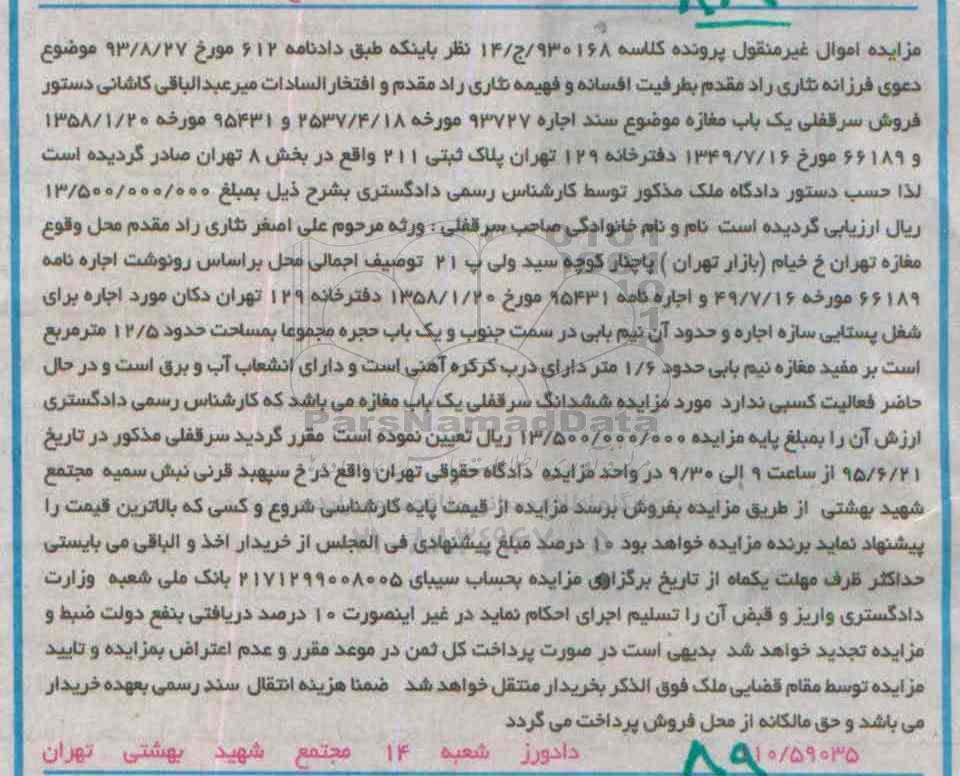 مزایده اموال غیرمنقول پرونده کلاسه ۹۳۰۱۶۸/ج/۱۴ نظر باینکه طبق دادنامه ۶۱۲ مورخ ۹۳/۸/۲۷ موضوع
دعوی فرزانه نثاری راد مقدم بطرفیت افسانه و فهیمه نثاری راد مقدم و افتخارالسادات میرعبدالباقی کاشانی دستور
فروش سرقفلی یک باب مغازه موضوع سند اجاره ۹۳۷۲۷ مورخه ۲۵۳۷/۴/۱۸ و ۹۵۴۳۱ مورخه ۱۳۵۸/۱/۲۰
و ۶۶۱۸۹ مورخ ۱۳۴۹/۷/۱۶ دفترخانه ۱۲۹ تهران پلاک ثبتی ۲۱۱ واقع در بخش ۸ تهران صادر گردیده است
لذا حسب دستور دادگاه ملک مذکور توسط کارشناس رسمی دادگستری بشرح ذیل بمبلغ ۱۳/۵۰۰/۰۰۰/۰۰۰
ریال ارزیابی گردیده است نام و نام خانوادگی صاحب سرقفلی : ورثه مرحوم علی اصغر نثاری راد مقدم محل وقوع
مغازه تهران خ خیام (بازار تهران ) پاچنار کوچه سید ولی پ ۲۱ توصیف اجمالی محل براساس رونوشت اجاره نامه
۶۶۱۸۹ مورخه ۴۹/۷/۱۶ و اجاره نامه ۹۵۴۳۱ مورخ ۱۳۵۸/۱/۲۰ دفترخانه ۱۲۹ تهران دکان مورد اجاره برای
شغل پستایی سازه اجاره و حدود آن نیم بابی در سمت جنوب و یک باب حجره مجموعا بمساحت حدود ۱۲/۵ مترمربع
است بر مفید مغازه نیم بابی حدود ۱/۶ متر دارای درب کرکره آهنی است و دارای انشعاب آب و برق است و در حال
حاضر فعالیت کسبی ندارد مورد مزایده ششدانگ سرقفلی یک باب مغازه می باشد که کارشناس رسمی دادگستری
ارزش آن را بمبلغ پایه مزایده ۱۳/۵۰۰/۰۰۰/۰۰۰ ریال تعیین نموده است مقرر گردید سرقفلی مذکور در تاریخ
۹۵/۶/۲۱ از ساعت ۹ الی ۹/۳۰ در واحد مزایده دادگاه حقوقی تهران واقع در خ سپهبد قرنی نبش سمیه مجتمع
شهید بهشتی از طریق مزایده بفروش برسد مزایده از قیمت پایه کارشناسی شروع و کسی که بالاترین قیمت را
پیشنهاد نماید برنده مزایده خواهد بود ۱۰ درصد مبلغ پیشنهادی فی المجلس از خریدار اخذ و الباقی می بایستی
حداکثر ظرف مهلت یکماه از تاریخ برگزاری مزایده بحساب سیبای ۲۱۷۱۲۹۹۰۰۸۰۰۵ بانک ملی شعبه وزارت
دادگستری واریز و قبض آن را تسلیم اجرای احکام نماید در غیر اینصورت ۱۰ درصد دریافتی بنفع دولت ضبط و
مزایده تجدید خواهد شد بدیهی است در صورت پرداخت کل ثمن در موعد مقرر و عدم اعتراض بمزایده و تایید
مزایده توسط مقام قضایی ملک فوق الذکر بخریدار منتقل خواهد شد ضمنا هزینه انتقال سند رسمی بعهده خریدار
می باشد و حق مالکانه از محل فروش پرداخت می گردد
۱۱۰/۵۹۰۳۵ ۸۹ دادورز شعبه ۱۴ مجتمع شهید بهشتی تهران
ParsNamadData